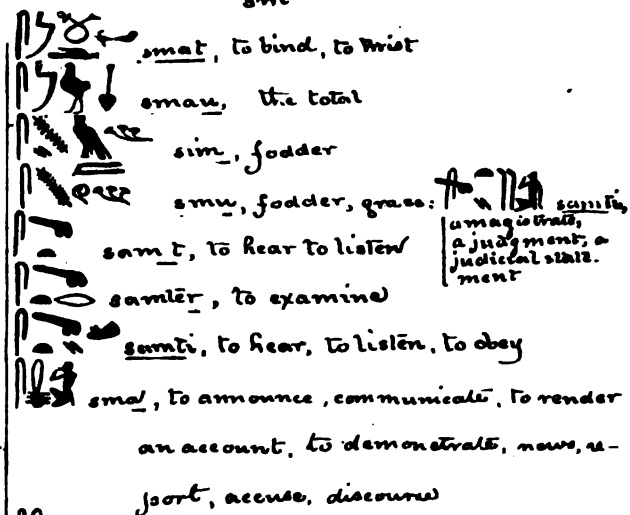 sm
smat, to bind, to twist
smau, the total
sim, fodder
smu, fodder, grass: samti,
a magistrate,
a judgment, a
judicial state-
ment
samt, to hear to listen
samtēr, to examine
samti, to hear, to listēn, to obey
sma, to announce, communicate, to render
an account, to demonstrate, news, re-
port, accuse, discourse